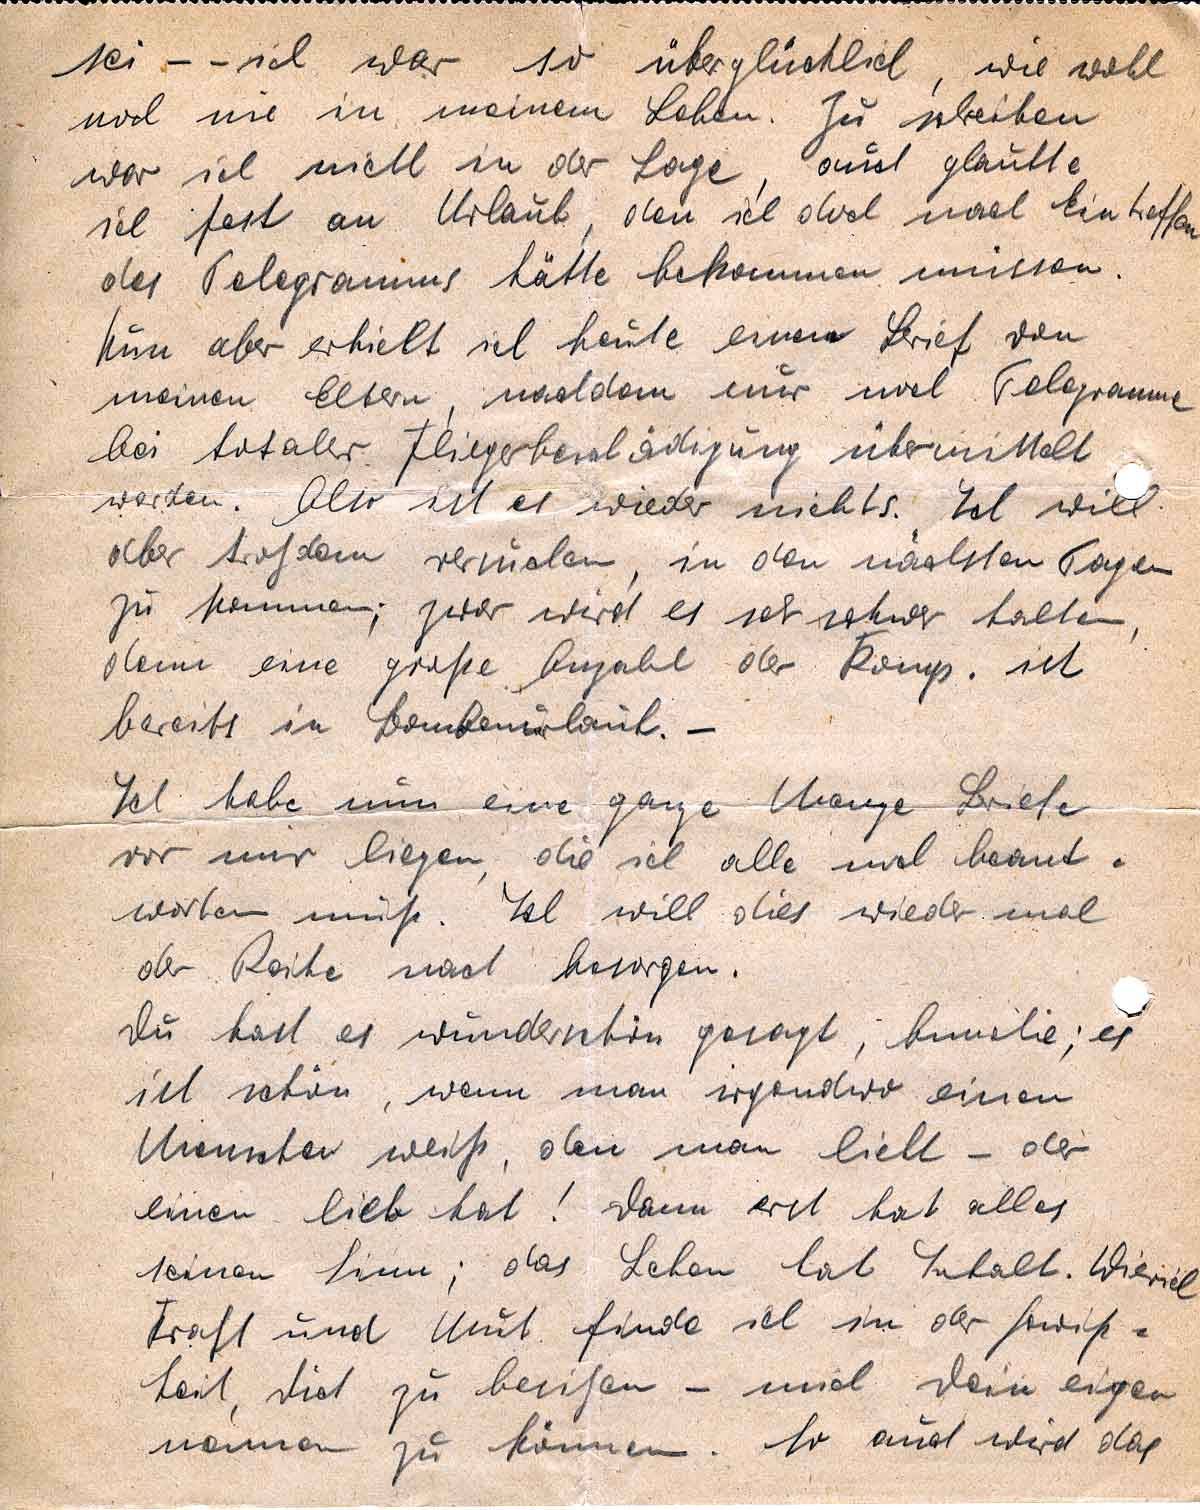 sei - - ich war so überglücklich, wie wohl
noch nie in meinem Leben. Zu schreiben
war ich nicht in der Lage, auch glaubte
ich fest an Urlaub, den ich doch nach Eintreffen
des Telegramms hätte bekommen müssen.
Nun aber erhielt ich heute einen Brief von
meinen Eltern, nachdem nur noch Telegramme
bei totaler Fliegerbeschädigung übermittelt
werden. Also ist es wieder nichts. Ich will
aber trotzdem versuchen, in den nächsten Tagen
zu kommen; zwar wird es sehr schwer halten,
denn eine große Anzahl der Komp. ist
bereits in Bombenurlaub. –
Ich habe nun eine ganze Menge Briefe
vor mir liegen, die ich alle noch beant-
worten muß. Ich will dies wieder mal
der Reihe nach besorgen.
Du hast es wunderschön gesagt, Annelie; es
ist schön, wenn man irgendwo einen
Menschen weiß, den man liebt – der
einen lieb hat! Dann erst hat alles
seinen Sinn; das Leben hat Inhalt. Wieviel
Kraft und Mut finde ich in der Gewiß-
heit, Dich zu besitzen – mich Dein eigen
nennen zu können. So auch wird das